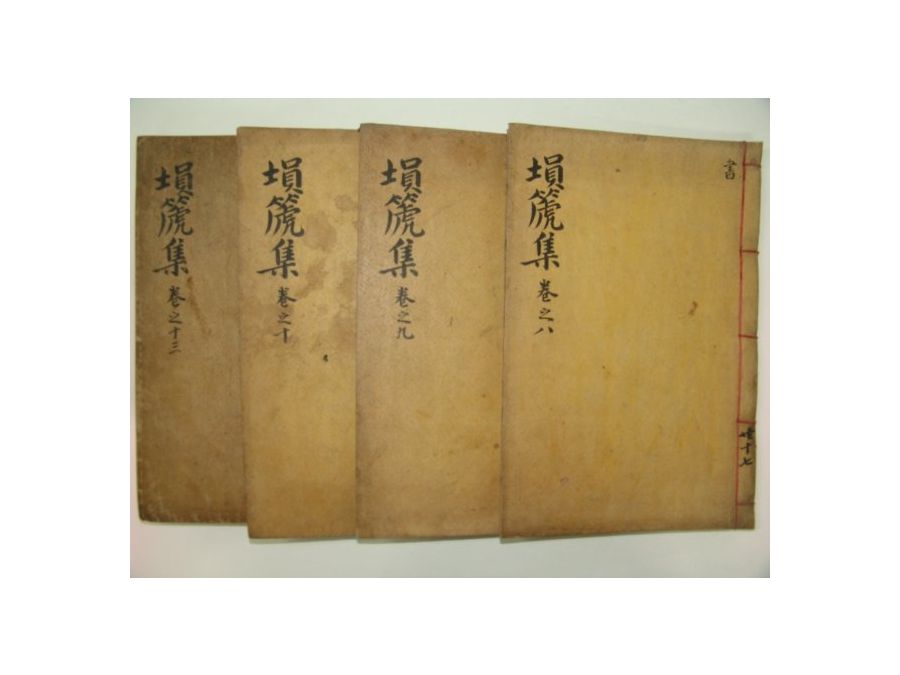 書
壎篪集 卷之八
壎篪集 卷之九
壎篪集 卷之十
壎篪集 卷之十三
共十七